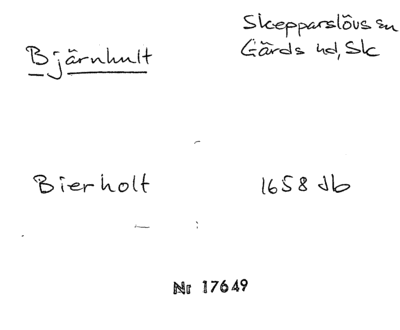 Skepparslövs sn
Bjärnhult
Gärds hd, Sk
Bierholt 1658 Jb
Nr 17649